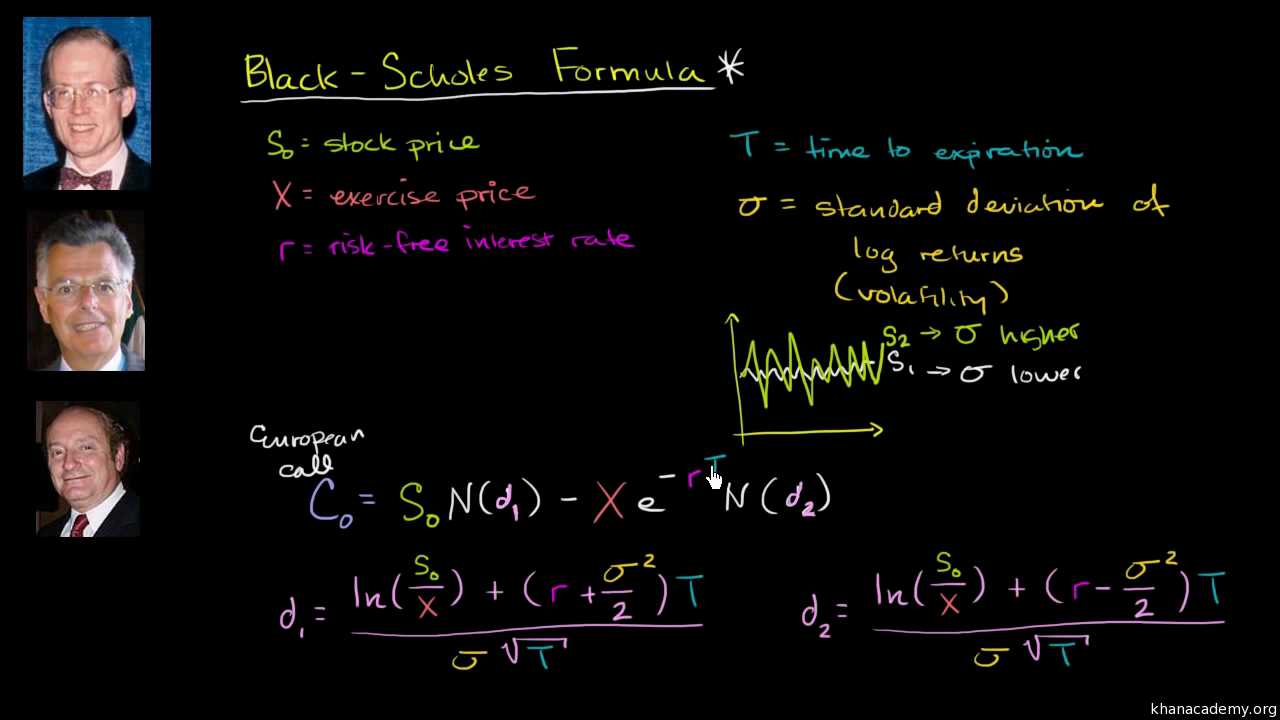 Black-Scholes Formula*
S₀ = stock price
X = exercise price
r = risk-free interest rate
T = time to expiration
σ = standard deviation of
log returns
(volatility)
S₂ → σ higher
S₁ → σ lower
European
call
C₀ = S₀ N(d₁) - X e^(-rT) N(d₂)
d₁ = (ln(S₀/X) + (r + σ²/2) T) / (σ √T)
d₂ = (ln(S₀/X) + (r - σ²/2) T) / (σ √T)
khanacademy.org